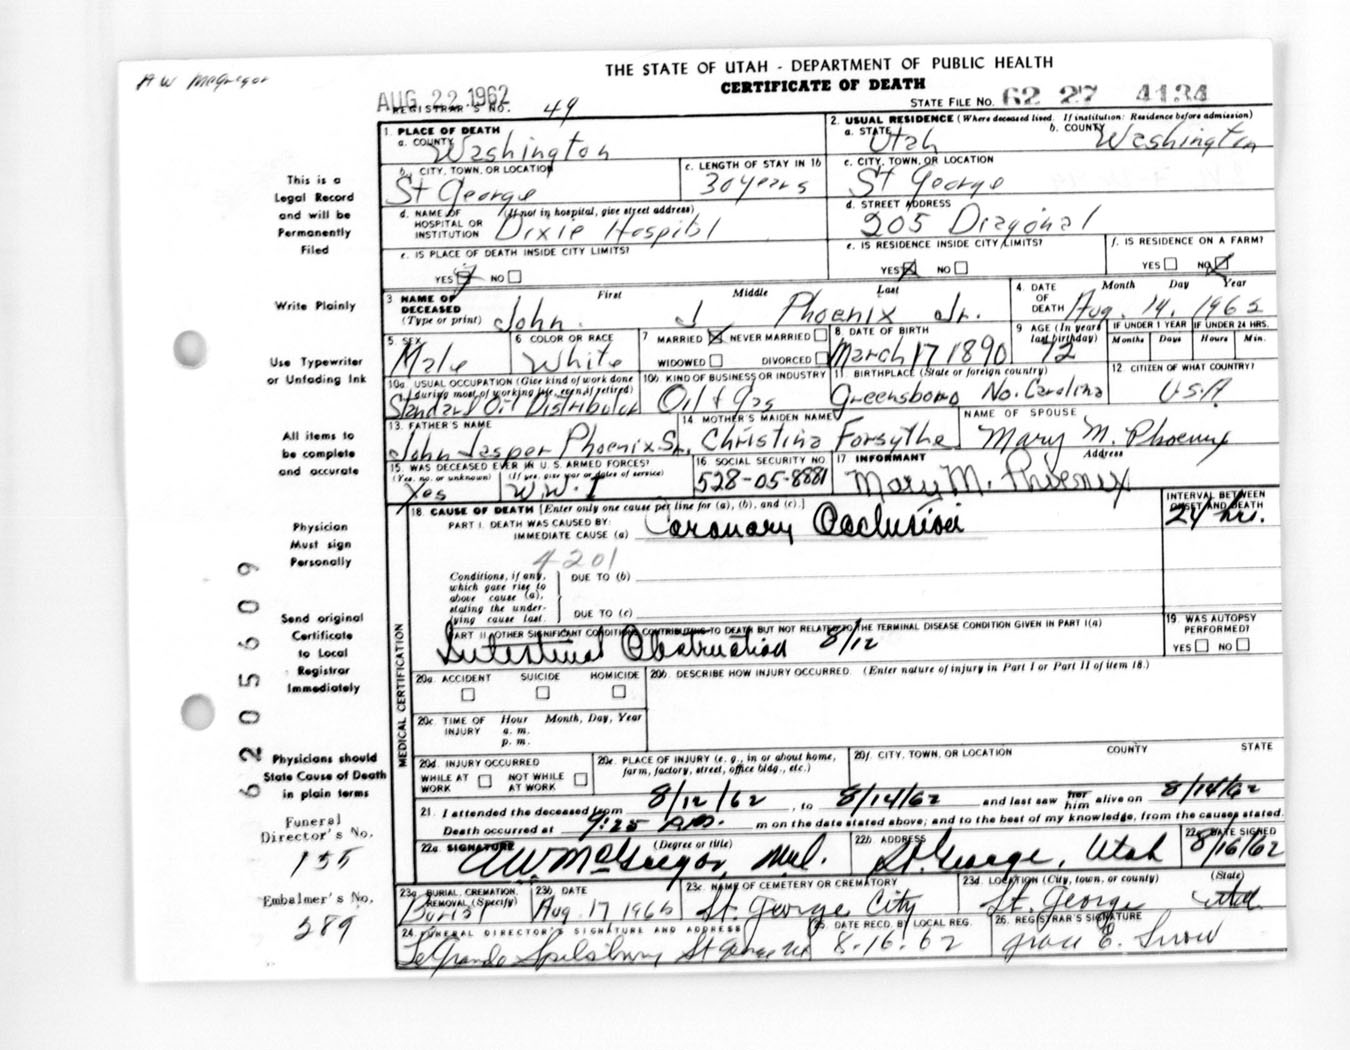 A W McGregor
THE STATE OF UTAH - DEPARTMENT OF PUBLIC HEALTH
CERTIFICATE OF DEATH
AUG 22 1962
REGISTRAR'S NO. 49
STATE FILE NO. 62 27 4134
1. PLACE OF DEATH
a. COUNTY Washington
2. USUAL RESIDENCE (Where deceased lived. If institution: Residence before admission)
a. STATE Utah b. COUNTY Washington
b. CITY, TOWN, OR LOCATION St George
c. LENGTH OF STAY IN 1b 30 years
c. CITY, TOWN, OR LOCATION St George
d. NAME OF HOSPITAL OR INSTITUTION (If not in hospital, give street address) Dixie Hospital
d. STREET ADDRESS 205 Diagonal
e. IS PLACE OF DEATH INSIDE CITY LIMITS?
YES NO
e. IS RESIDENCE INSIDE CITY LIMITS?
YES NO
f. IS RESIDENCE ON A FARM?
YES NO
3 NAME OF DECEASED (Type or print) First Middle Last
John J Phoenix Jr.
4. DATE OF DEATH Month Day Year
Aug. 14, 1962
5. SEX Male
6 COLOR OR RACE White
7 MARRIED NEVER MARRIED
WIDOWED DIVORCED
8. DATE OF BIRTH March 17 1890
9 AGE (In years last birthday) 72
IF UNDER 1 YEAR Months Days
IF UNDER 24 HRS. Hours Min.
10a. USUAL OCCUPATION (Give kind of work done during most of working life, even if retired)
Standard Oil Distributor
10b. KIND OF BUSINESS OR INDUSTRY Oil & Gas
11. BIRTHPLACE (State or foreign country) Greensboro No. Carolina
12 CITIZEN OF WHAT COUNTRY? U.S.A
13. FATHER'S NAME John Jasper Phoenix Sr.
14 MOTHER'S MAIDEN NAME Christina Forsythe
NAME OF SPOUSE Mary M. Phoenix
15. WAS DECEASED EVER IN U. S. ARMED FORCES?
(Yes, no, or unknown) (If yes, give war or dates of service)
Yes W.W. I
16. SOCIAL SECURITY NO 528-05-8881
17. INFORMANT Address
Mary M. Phoenix
18. CAUSE OF DEATH [Enter only one cause per line for (a), (b), and (c).]
INTERVAL BETWEEN ONSET AND DEATH
PART I. DEATH WAS CAUSED BY:
IMMEDIATE CAUSE (a) Coronary Occlusion 24 hrs.
4201
Conditions, if any, which gave rise to above cause (a), stating the underlying cause last.
DUE TO (b)
DUE TO (c)
PART II. OTHER SIGNIFICANT CONDITIONS CONTRIBUTING TO DEATH BUT NOT RELATED TO THE TERMINAL DISEASE CONDITION GIVEN IN PART I(a)
Intestinal Obstruction 8/12
19. WAS AUTOPSY PERFORMED?
YES NO
20a. ACCIDENT SUICIDE HOMICIDE
20b. DESCRIBE HOW INJURY OCCURRED. (Enter nature of injury in Part I or Part II of item 18.)
20c. TIME OF INJURY Hour Month, Day, Year
a. m.
p. m.
20d. INJURY OCCURRED
WHILE AT WORK NOT WHILE AT WORK
20e. PLACE OF INJURY (e. g., in or about home, farm, factory, street, office bldg., etc.)
20f. CITY, TOWN, OR LOCATION COUNTY STATE
21. I attended the deceased from 8/12/62, to 8/14/62 and last saw her him alive on 8/14/62
Death occurred at 9:25 A.M. m on the date stated above; and to the best of my knowledge, from the causes stated.
22a. SIGNATURE (Degree or title) A.W. McGregor, M.D.
22b. ADDRESS St. George, Utah
22c. DATE SIGNED 8/16/62
23a BURIAL, CREMATION, REMOVAL (Specify) Burial
23b. DATE Aug 17 1962
23c. NAME OF CEMETERY OR CREMATORY St. George City
23d. LOCATION (City, town, or county) (State)
St. George Utah
24. FUNERAL DIRECTOR'S SIGNATURE AND ADDRESS
LeGrande Spilsbury St George Ut
25. DATE RECD. BY LOCAL REG. 8-16-62
26. REGISTRAR'S SIGNATURE Grace E. Snow
MEDICAL CERTIFICATION
This is a
Legal Record
and will be
Permanently
Filed
Write Plainly
Use Typewriter
or Unfading Ink
All items to
be complete
and accurate
Physician
Must sign
Personally
Send original
Certificate
to Local
Registrar
Immediately
Physicians should
State Cause of Death
in plain terms
Funeral
Director's No.
155
Embalmer's No.
289
6205609